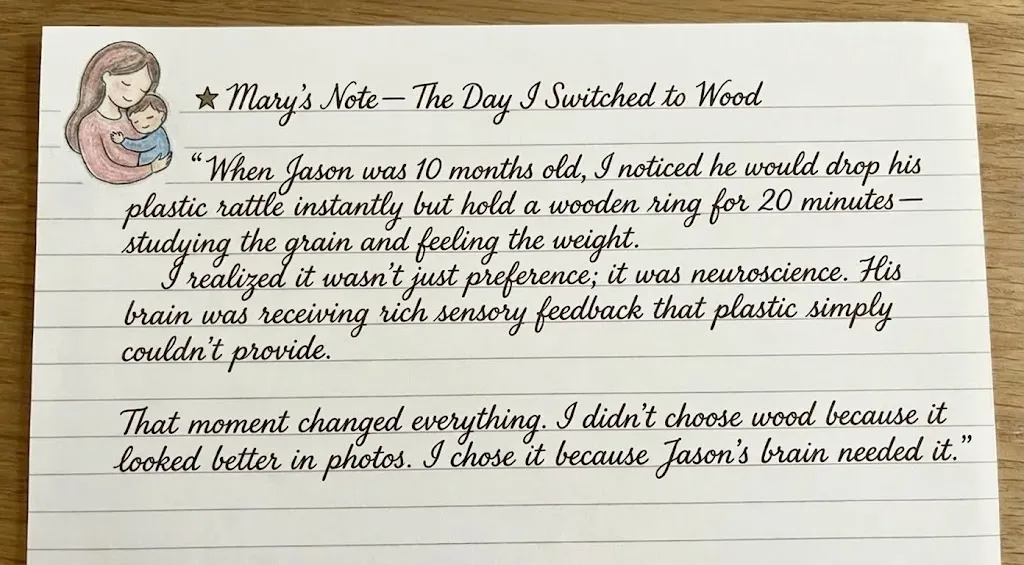 ★ Mary's Note — The Day I Switched to Wood
"When Jason was 10 months old, I noticed he would drop his
plastic rattle instantly but hold a wooden ring for 20 minutes—
studying the grain and feeling the weight.
I realized it wasn't just preference; it was neuroscience. His
brain was receiving rich sensory feedback that plastic simply
couldn't provide.
That moment changed everything. I didn't choose wood because it
looked better in photos. I chose it because Jason's brain needed it."